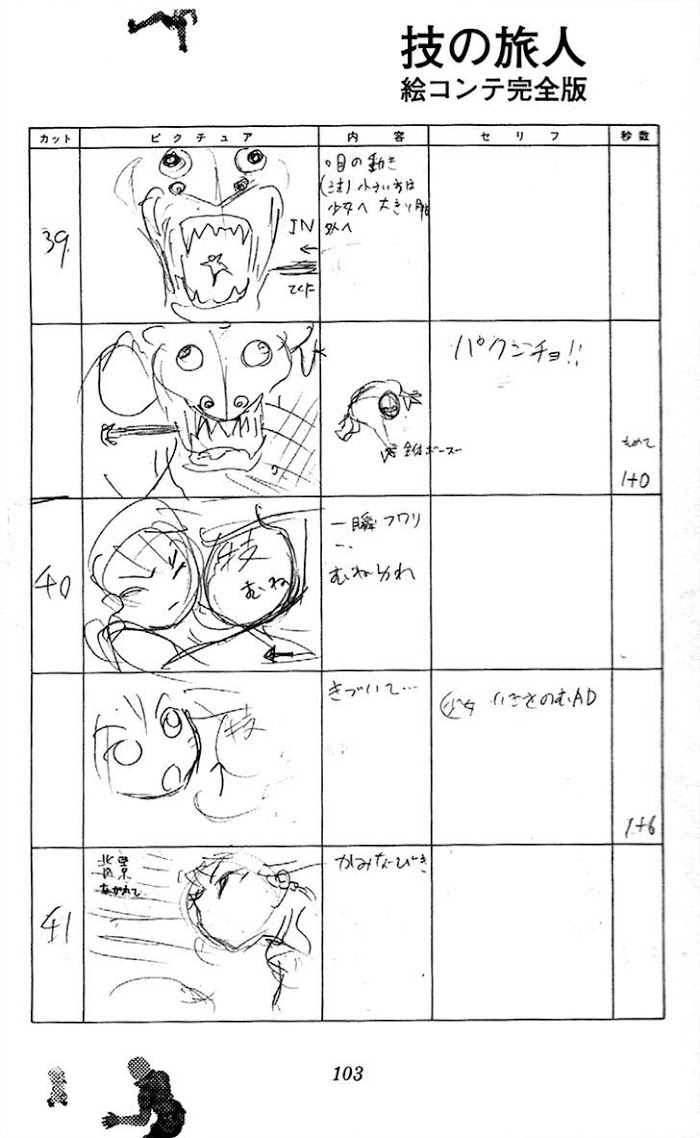 技の旅人
絵コンテ完全版
カット
ピクチュア
内容
セリフ
秒数
39.
IN
目の動き
(注)小さい方は
少女へ 大きい
外へ
パクンチョ!!
1+0
40
技
むね
一瞬フワリ
…
むねゆれ
技
きづいて…
少女 いきをのむAD
1+6
41
背景
ながれて
かみなびき
103